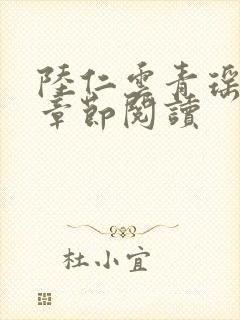 陸仁雲青瑶
章節閱讀
杜小宜